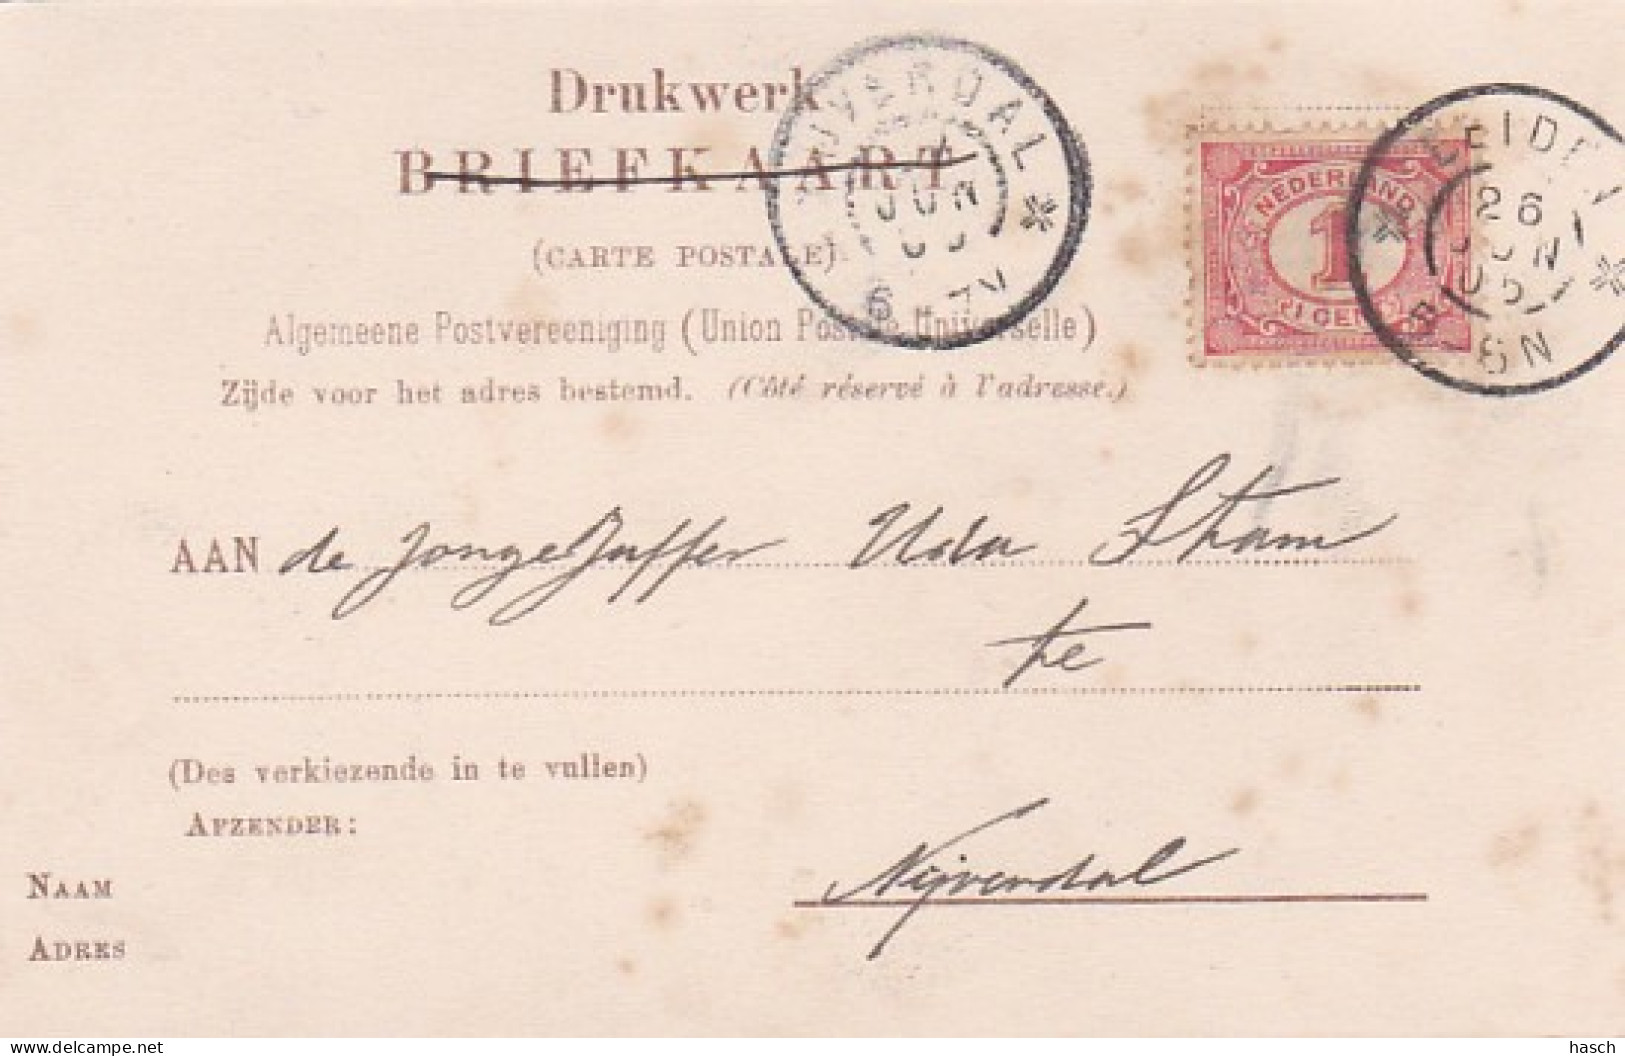 Drukwerk
BRIEFKAART
(CARTE POSTALE)
Algemeene Postvereeniging (Union Postale Universelle)
Zijde voor het adres bestemd. (Côté réservé à l'adresse.)
NIJVERDAL
JUN
6 7N
NEDERLAND
1
1 CENT
LEIDEN
26
JUN
05
6N
AAN de JongeJuffer Uda Stam
te
Nijverdal
(Des verkiezende in te vullen)
AFZENDER:
NAAM
ADRES
delcampe.net
hasch